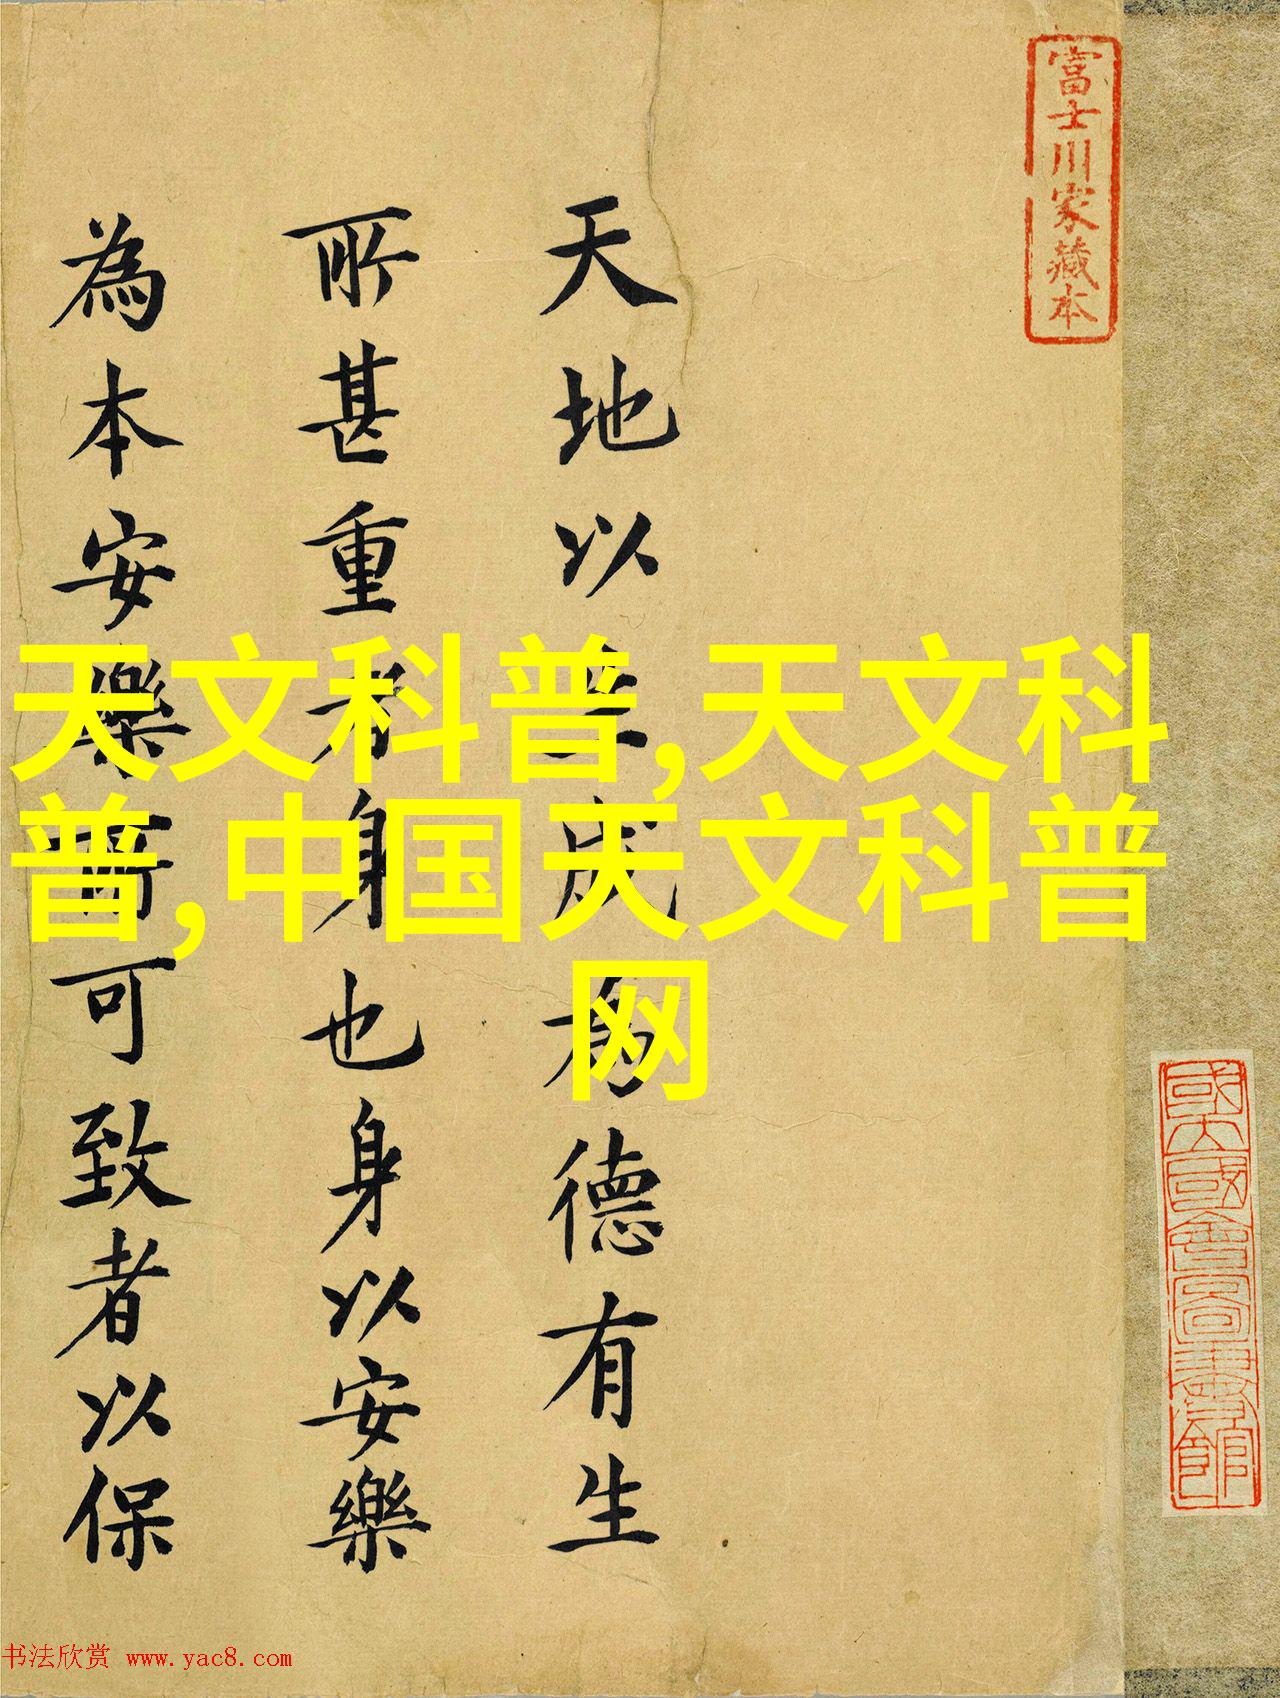 富士川家藏本
天地以生成為德有生
所甚重者身也身以安樂
為本安樂所可致者以保
天文科普,天文科
普,中国天文科普
网
國立國會圖書館
书法欣赏 www.yac8.com